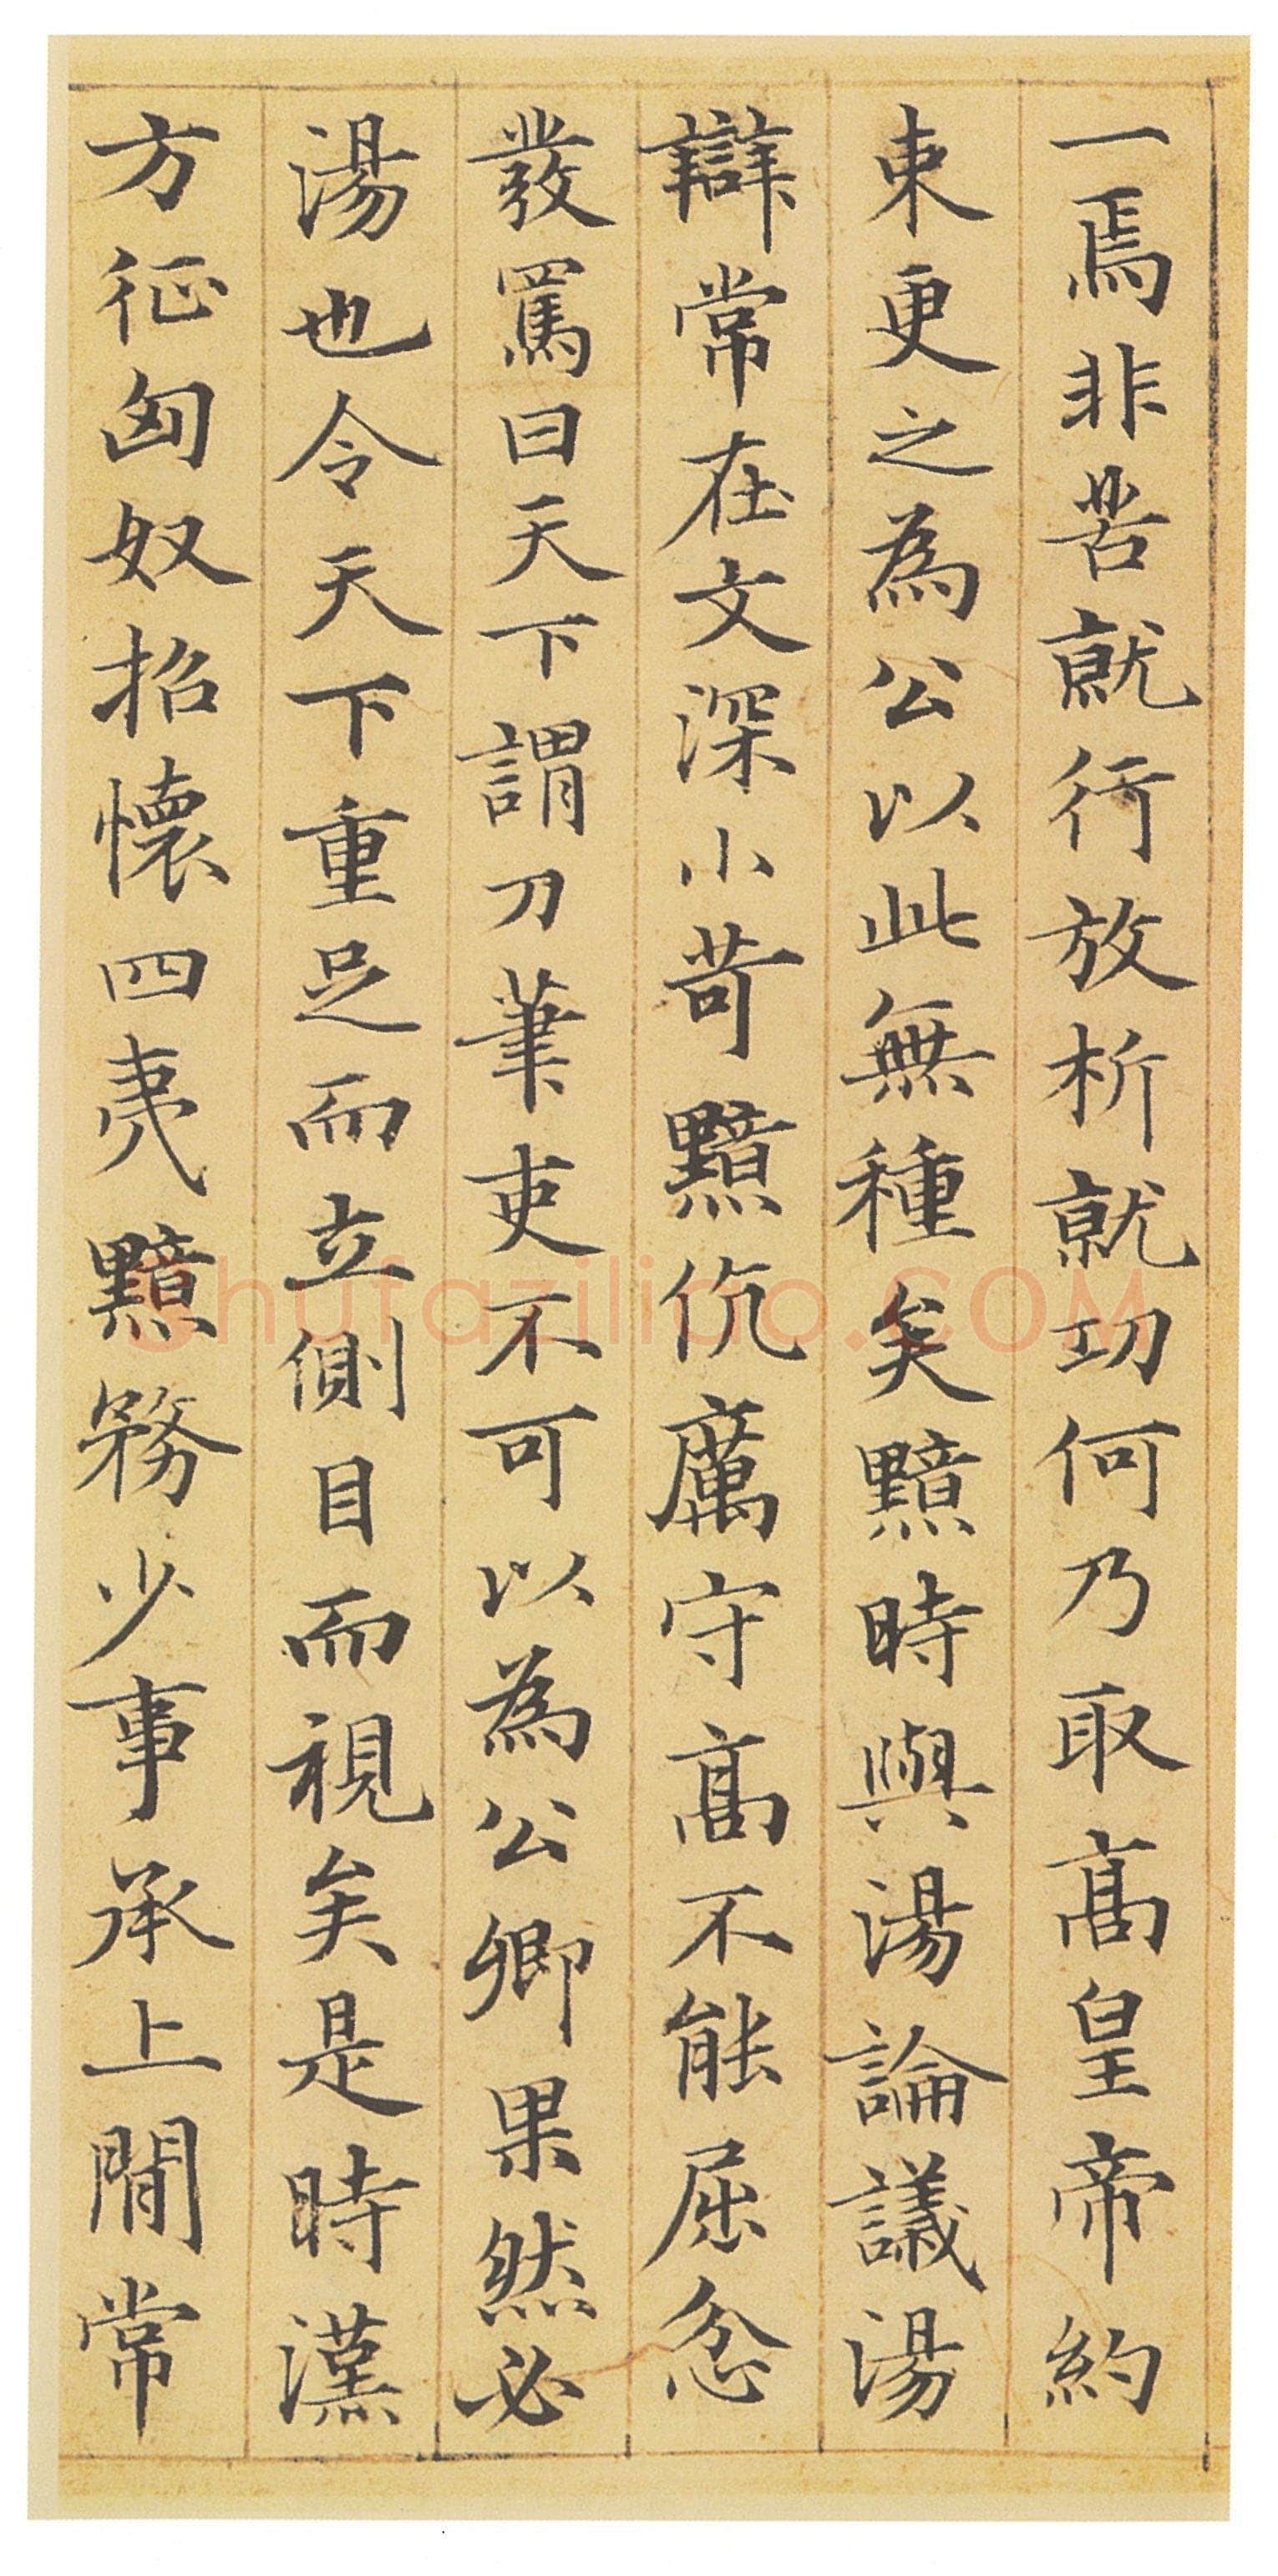 一焉非苦就行放析就功何乃取髙皇帝約
束更之為公以此無種矣黯時與湯論議湯
辯常在文深小苛黯伉厲守髙不能屈忿
發罵曰天下謂刀筆吏不可以為公卿果然必
湯也令天下重足而立側目而視矣是時漢
方征匈奴招懷四夷黯務少事承上閒常
shufaziliao.COM